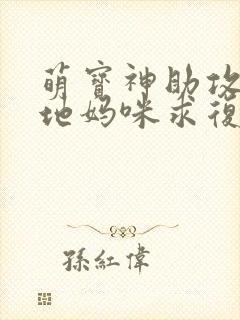 萌寶神助攻
地媽咪求復
孫紅偉